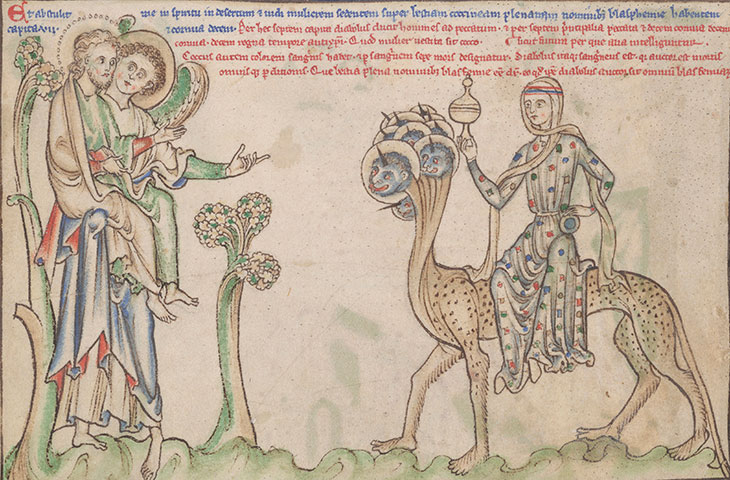 Et abstulit me in spiritu in desertum & uidi mulierem sedentem super bestiam coccineam plenam nominib; blasphemie habentem
capita vii. & cornua decem. Per hec septem capita diabolus ducit homines ad peccatum. & per septem principalia peccata & decem cornua decem
cornua. decem regna tempore antixpi. Quod mulier uestita fuit cocco. per que alia intelliguntur.
Coccus autem colorem sanguinis habet. & per sanguinem sepe mors designatur. Diabolus itaq; sanguineus est. qui auctor est mortis
omnis q; perditionis. Que bestia plena nominib; blasfemie diabolus auctor sit omnium blasfemiarum